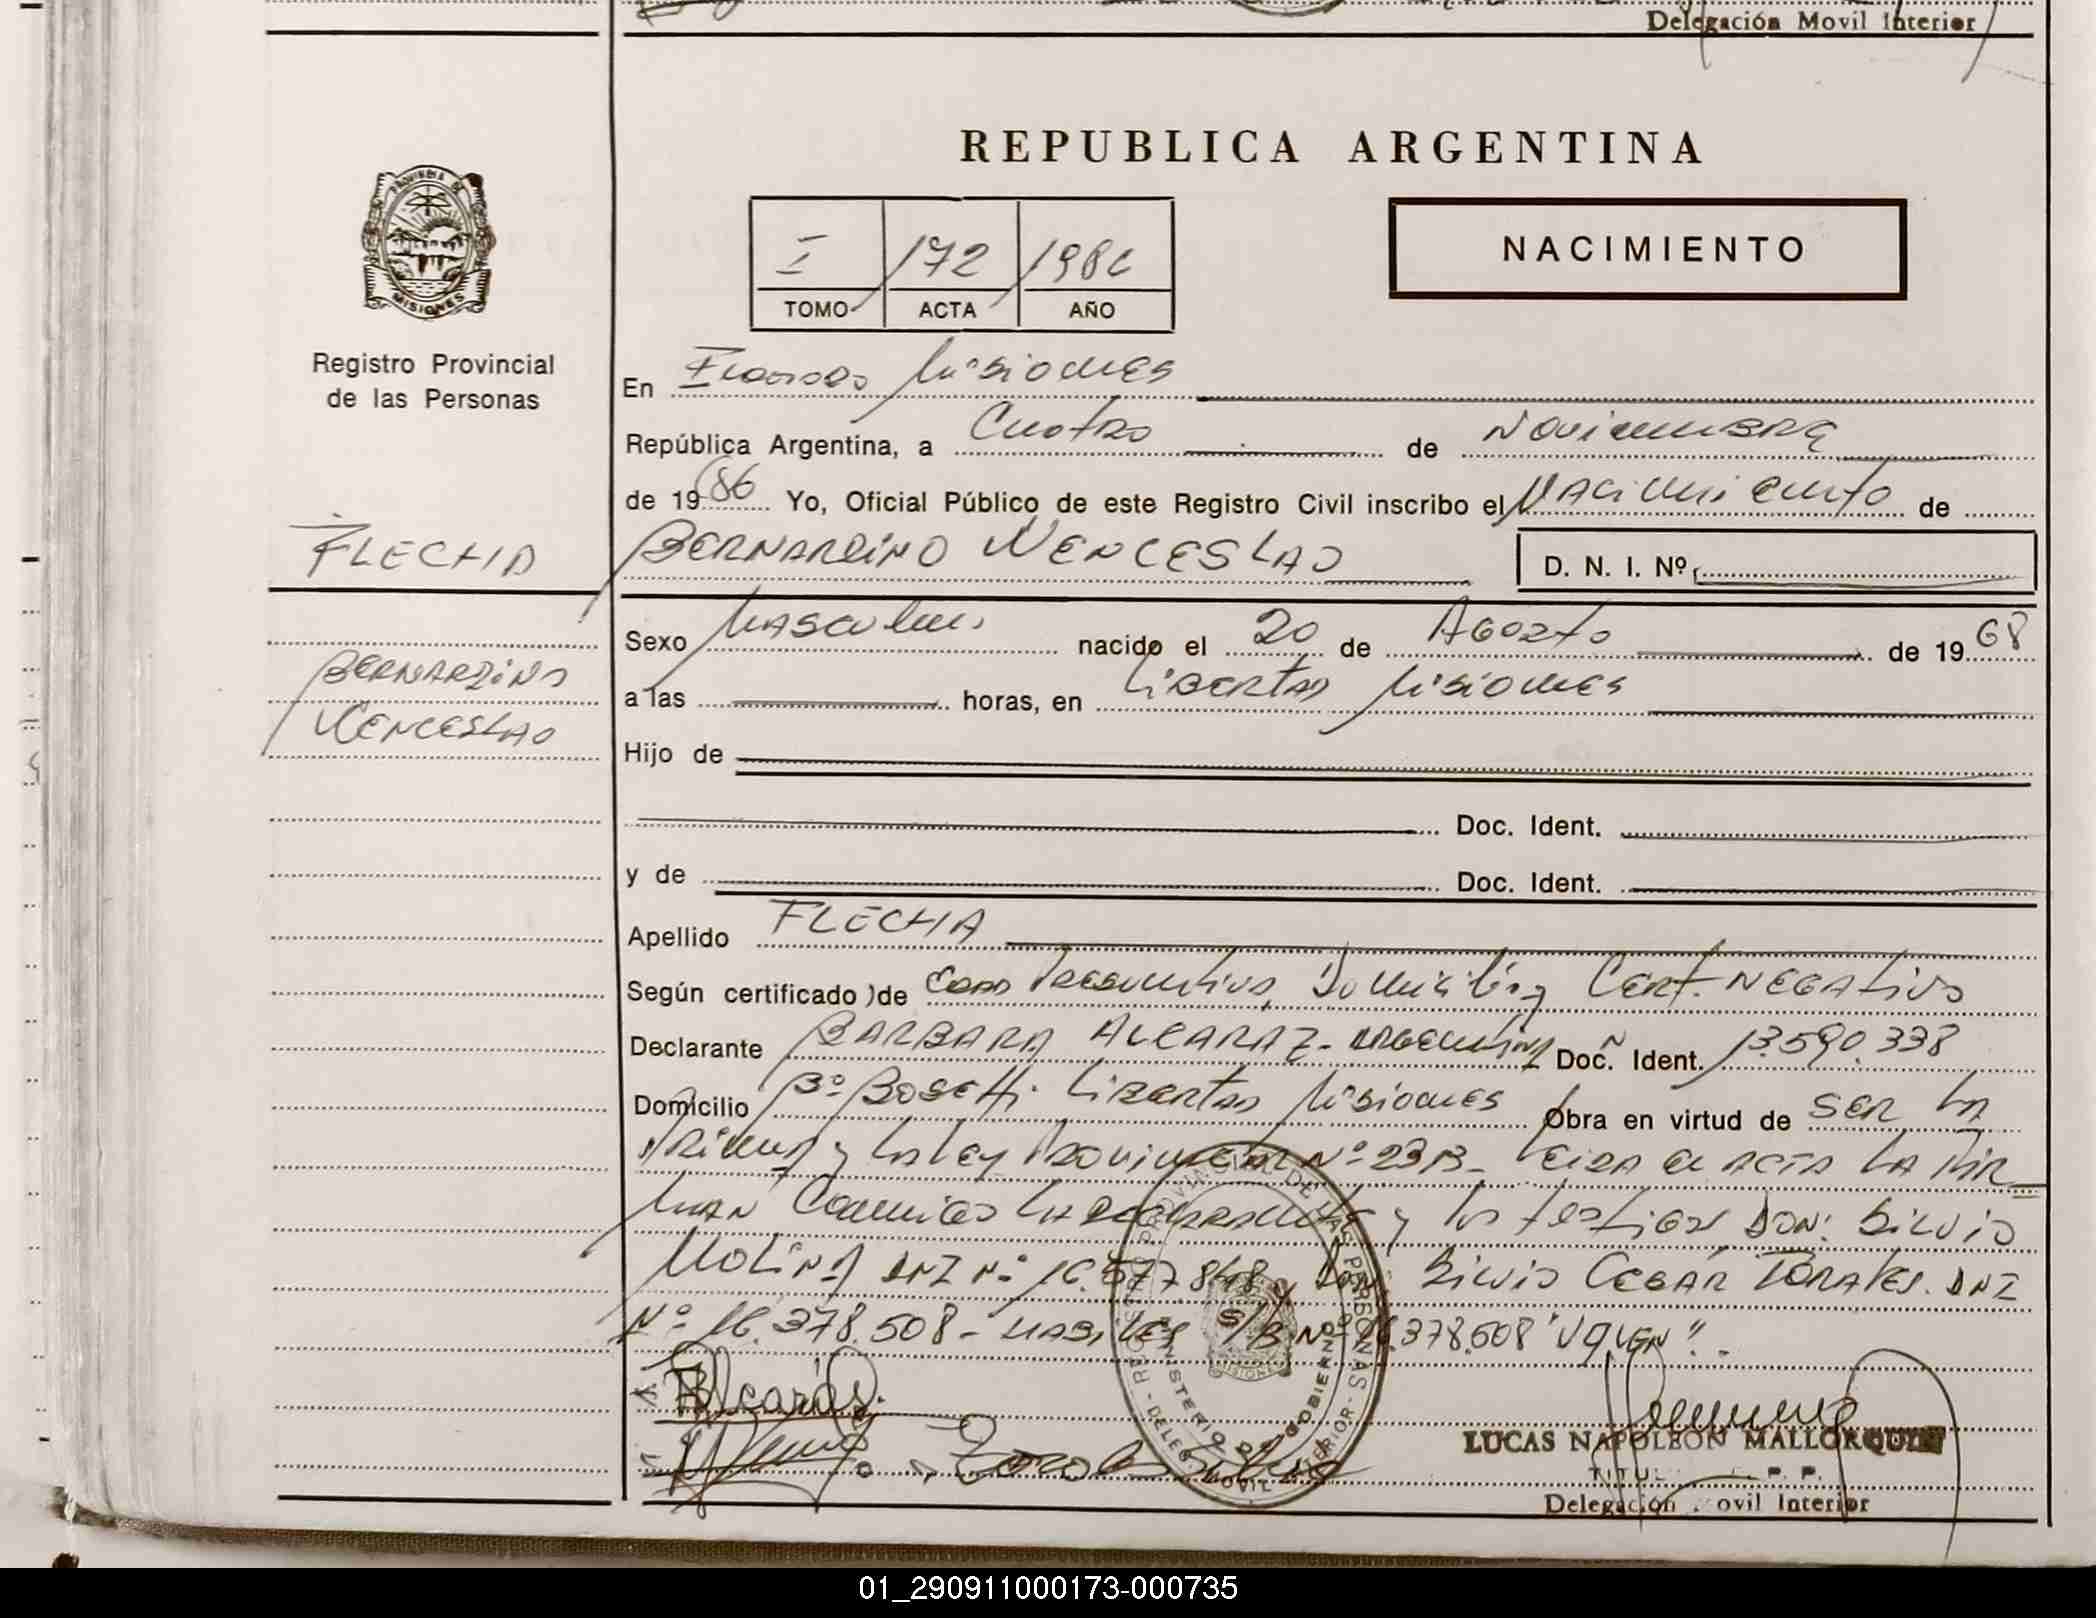 Delegación Movil Interior
REPUBLICA ARGENTINA
PROVINCIA DE MISIONES
Registro Provincial
de las Personas
I 172 1986
TOMO ACTA AÑO
NACIMIENTO
En Misiones
República Argentina, a Cuatro de Noviembre
de 1986 Yo, Oficial Público de este Registro Civil inscribo el Nacimiento de
FLECHA
BERNARDINO WENCESLAO
D. N. I. Nº
Sexo Masculino nacido el 20 de Agosto de 1968
BERNARDINO
WENCESLAO
a las horas, en Libertad Misiones
Hijo de
Doc. Ident.
y de Doc. Ident.
Apellido FLECHA
Según certificado de Edad Presuntiva, Domicilio y Cert. NEGAtivo
Declarante BARBARA ALCARAZ - ARGENtINA Doc. Ident. Nº 13.590.338
Domicilio Bº Bosetti Libertad Misiones Obra en virtud de SER LA
Prima y la Ley Provincial Nº 23B - Leida el ACTA LA FIR
MAN Conmigo LA declarante y los testigos DON: Silvio
MOLINA DNI Nº 16.577.848 y Don Silvio CESAR TORALES. DNI
Nº 16.378.508 - HABILES S/B Nº 16.378.508 "VALEN".
Alcaráz
REGISTRO PROVINCIAL DE LAS PERSONAS
MINISTERIO DE GOBIERNO
DELEG. MOVIL INTERIOR
LUCAS NAPOLEON MALLORQUIN
TITUL R. P. P.
Delegación Movil Interior
01_290911000173-000735